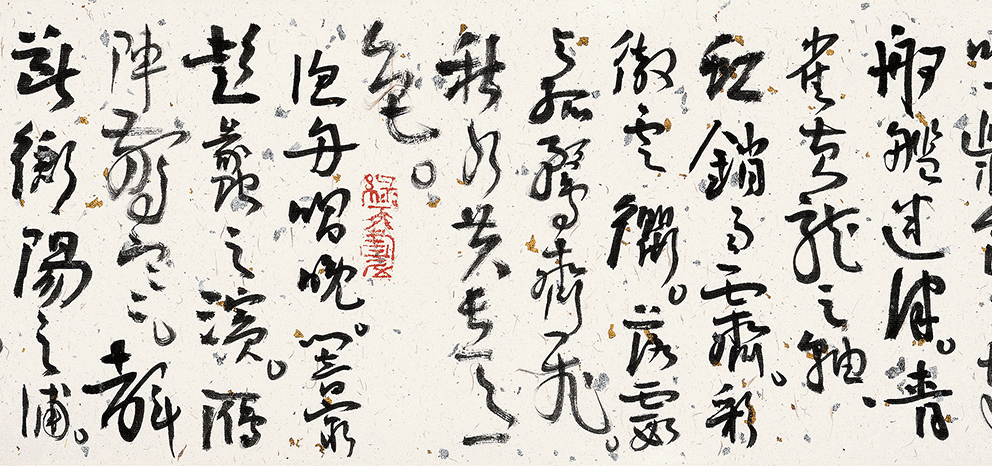 舸艦迷津。青
雀黃龍之軸。
虹銷雨霽。彩
徹雲衢。落霞
與孤鶩齊飛。
秋水共長天一
色。
漁舟唱晚。響窮
彭蠡之濱。雁
陣驚寒。聲
斷衡陽之浦。